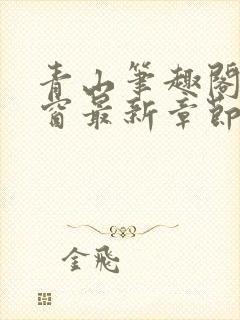 青山筆趣閣
窗最新章節
金飛